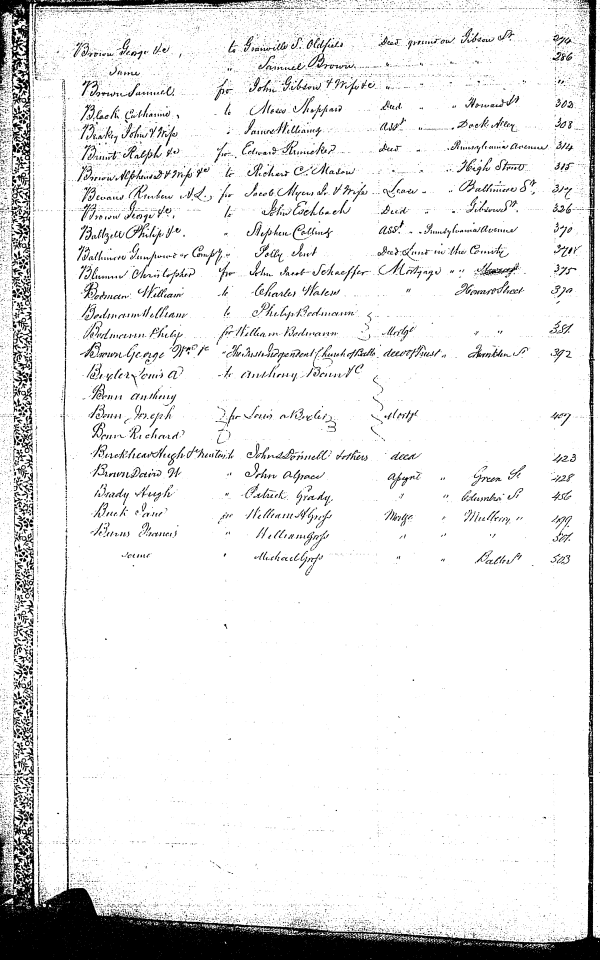 Brown George &c, to Granville S. Oldfield Deed ground on Gibson St. 274
Same " Samuel Brown " " " 286
Brown Samuel for John Gibson & Wife &c " " " " "
Black Catharine, to Moses Sheppard Deed " " Howard St 302
James Williams Asst " Dock Alley 308
Ralph &c for Edward Deed " Pennsylvania Avenue 314
Brown Alpheus D & Wife &c to Richard C. Mason " " High Street 315
Bevans Reuben for Jacob Myers Sr. & Wife Lease " " Baltimore St. 317
Brown George &c, to John Eschbach Deed " " Gibson St. 326
Baltzell Philip &c, " Stephen Collins Asst. " " Pennsylvania Avenue 370
Baltimore Gunpowder Compy " Polly Deed Land in the County
Christopher for John Jacob Schaeffer Mortgage " " 375
Bodman William to Charles Waters " Howard Street
Bodmann William to Philip Bodmann
Bodmann Philip for William Bodmann Mortge " " 381
Brown George Wm &c " The Independent Church of Balto deed of Trust " Franklin St 392
Bixler Louis A to Anthony Bonn &c
Bonn Anthony
Bonn Joseph for Louis A Bixler Mortge 407
Bonn Richard
Hugh to John S Donnell & others deed 423
Brown David W " John A " Green St 428
Brady Hugh " Patrick Grady " " Columbia St 456
Buck Jane for William H Gross Mortge " Mulberry " 499
Burns Francis " William Gross " " " 501
same " Michael Gross " " Balto St 503